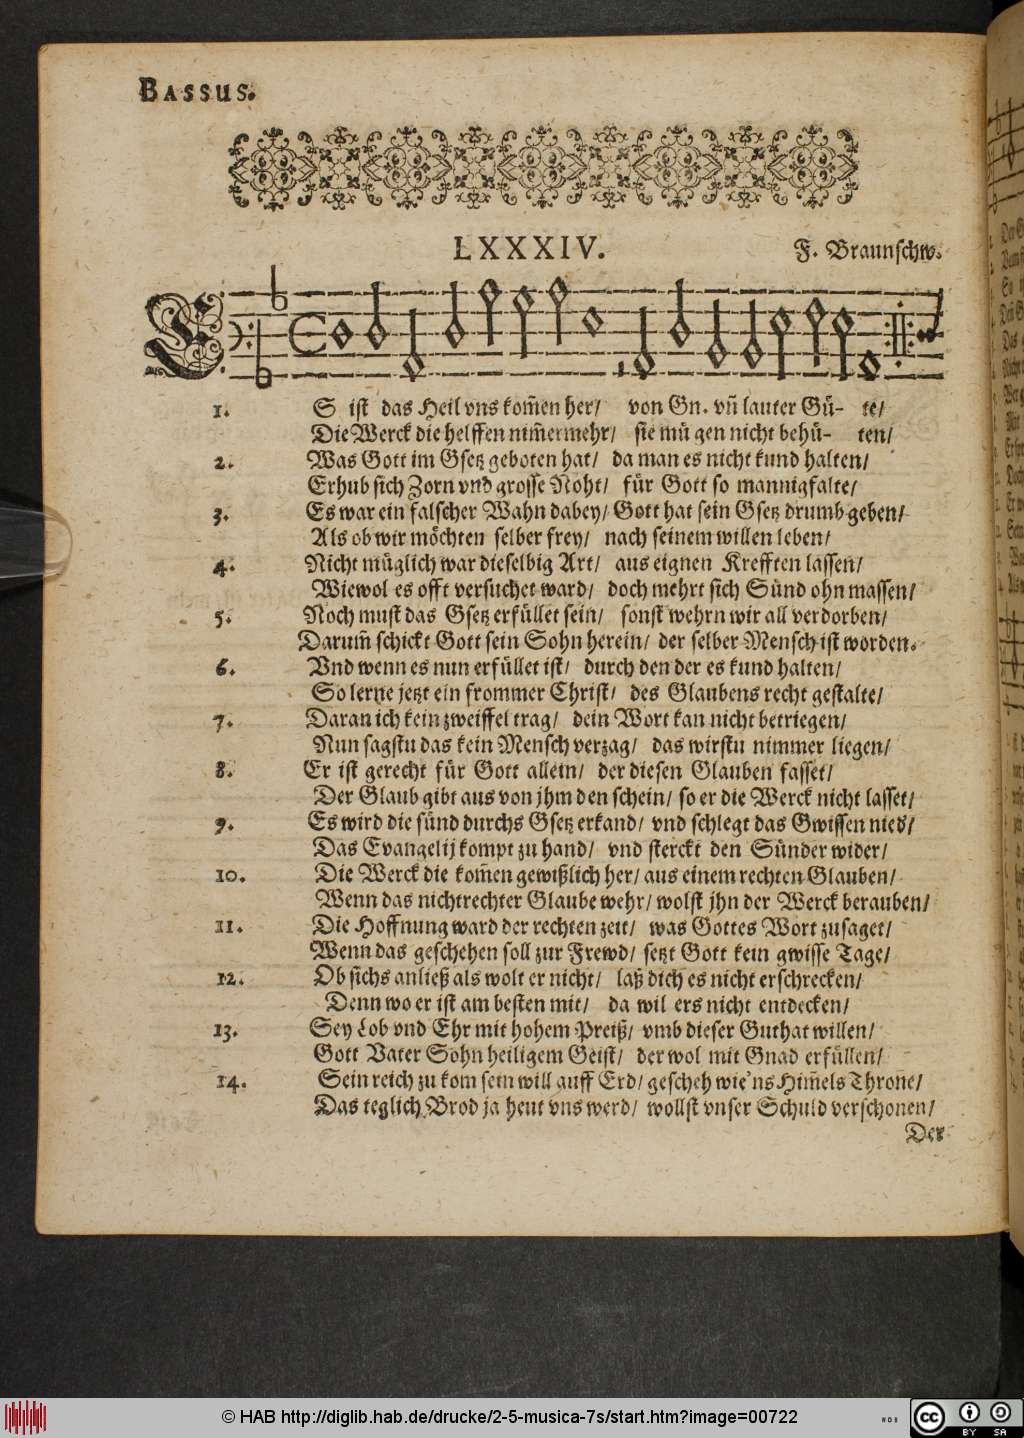 BASSUS.
LXXXIV. F. Braunschw.
E
1. S ist das Heil vns kom̃en her/ von Gn. vn̄ lauter Gü- te/
Die Werck die helffen nim̃ermehr/ sie mü gen nicht behü- ten/
2. Was Gott im Gsetz geboten hat/ da man es nicht kund halten/
Erhub sich Zorn vnd grosse Noht/ für Gott so mannigfalte/
3. Es war ein falscher Wahn dabey/ Gott hat sein Gsetz drumb geben/
Als ob wir möchten selber frey/ nach seinem willen leben/
4. Nicht müglich war dieselbig Art/ aus eignen Krefften lassen/
Wiewol es offt versuchet ward/ doch mehrt sich Sünd ohn massen/
5. Noch must das Gsetz erfüllet sein/ sonst wehrn wir all verdorben/
Darum̃ schickt Gott sein Sohn herein/ der selber Mensch ist worden.
6. Vnd wenn es nun erfüllet ist/ durch den der es kund halten/
So lerne jetzt ein frommer Christ/ des Glaubens recht gestalte/
7. Daran ich kein zweiffel trag/ dein Wort kan nicht betriegen/
Nun sagstu das kein Mensch verzag/ das wirstu nimmer liegen/
8. Er ist gerecht für Gott allein/ der diesen Glauben fasset/
Der Glaub gibt aus von jhm den schein/ so er die Werck nicht lasset/
9. Es wird die sünd durchs Gsetz erkand/ vnd schlegt das Gwissen nied/
Das Evangelij kompt zu hand/ vnd sterckt den Sünder wider/
10. Die Werck die kom̃en gewißlich her/ aus einem rechten Glauben/
Wenn das nichtrechter Glaube wehr/ wolst jhn der Werck berauben/
11. Die Hoffnung ward der rechten zeit/ was Gottes Wort zusaget/
Wenn das geschehen soll zur Frewd/ setzt Gott kein gwisse Tage/
12. Ob sichs anließ als wolt er nicht/ laß dich es nicht erschrecken/
Denn wo er ist am besten mit/ da wil ers nicht entdecken/
13. Sey Lob vnd Ehr mit hohem Preiß/ vmb dieser Guthat willen/
Gott Vater Sohn heiligem Geist/ der wol mit Gnad erfüllen/
14. Sein reich zu kom sein will auff Erd/ gescheh wie'ns Him̃els Throne/
Das teglich Brod ja heut vns werd/ wollst vnser Schuld verschonen/
Der
© HAB http://diglib.hab.de/drucke/2-5-musica-7s/start.htm?image=00722
cc BY SA